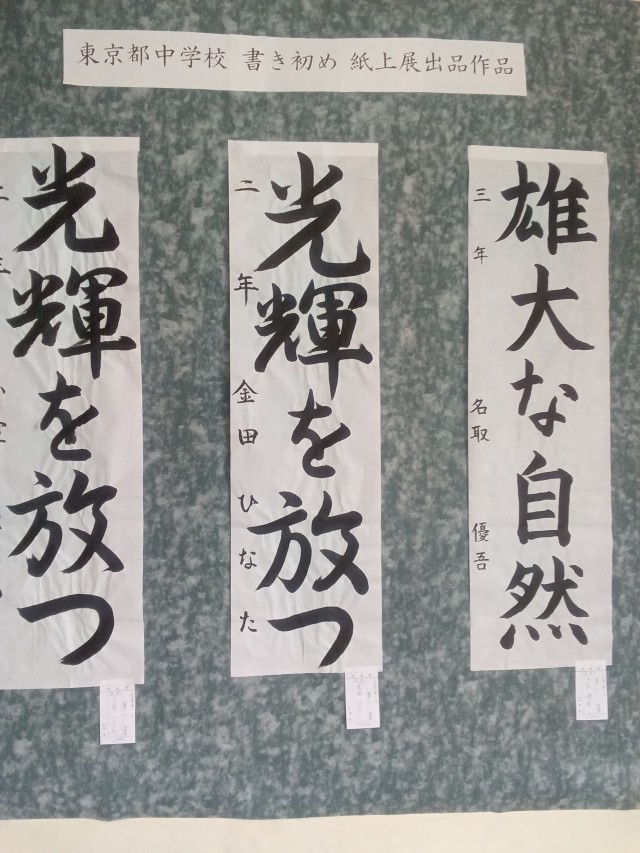 東京都中学校 書き初め 紙上展出品作品
雄大な自然
三年 名取 優吾
光輝を放つ
二年 金田 ひなた
光輝を放つ